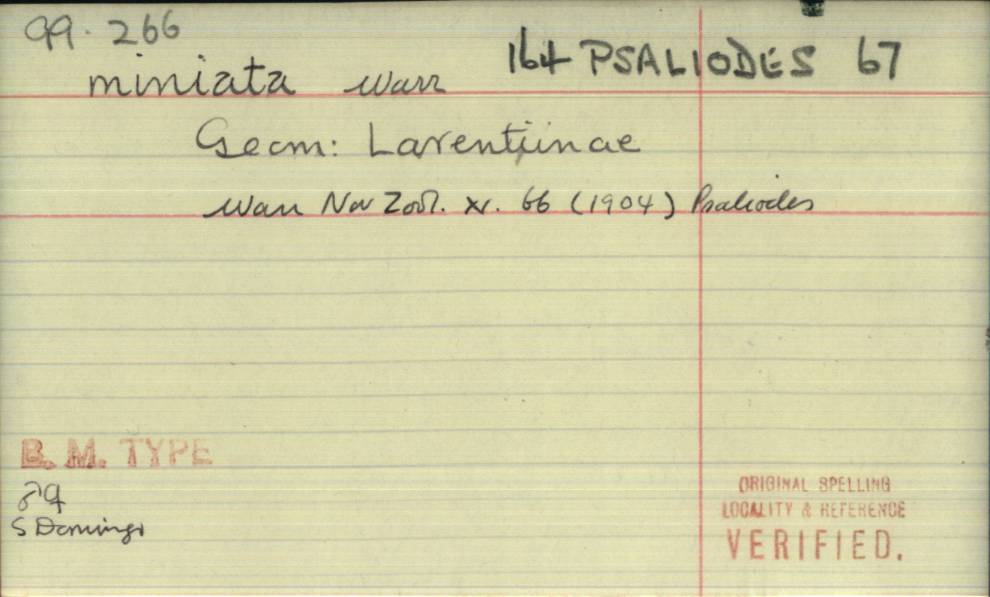 99. 266
164 PSALIODES 67
miniata Warr
Geom: Larentiinae
Warr Nov Zool. xi. 66 (1904) Psaliodes
B. M. TYPE
♂♀
S Domingo
ORIGINAL SPELLING
LOCALITY & REFERENCE
VERIFIED.